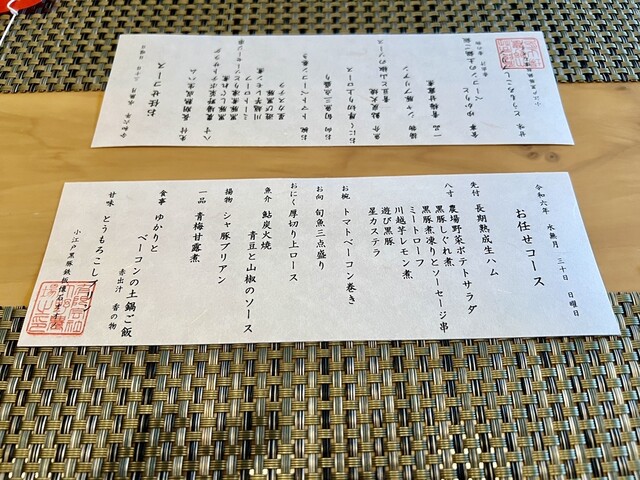 令和六年 水無月 三十日 日曜日
お任せコース
先付 長期熟成生ハム
八寸 農場野菜ポテトサラダ
黒豚しぐれ煮
黒豚煮凍りとソーセージ串
ミートローフ
川越芋レモン煮
遊び黒豚
星カステラ
お椀 トマトベーコン巻き
お向 旬魚三点盛り
おにく 厚切り上ロース
魚介 鮎炭火焼
青豆と山椒のソース
揚物 シャ豚ブリアン
一品 青梅甘露煮
食事 ゆかりと
ベーコンの土鍋ご飯
赤出汁 香の物
甘味 とうもろこしプリン
小江戸黒豚鉄板懐石